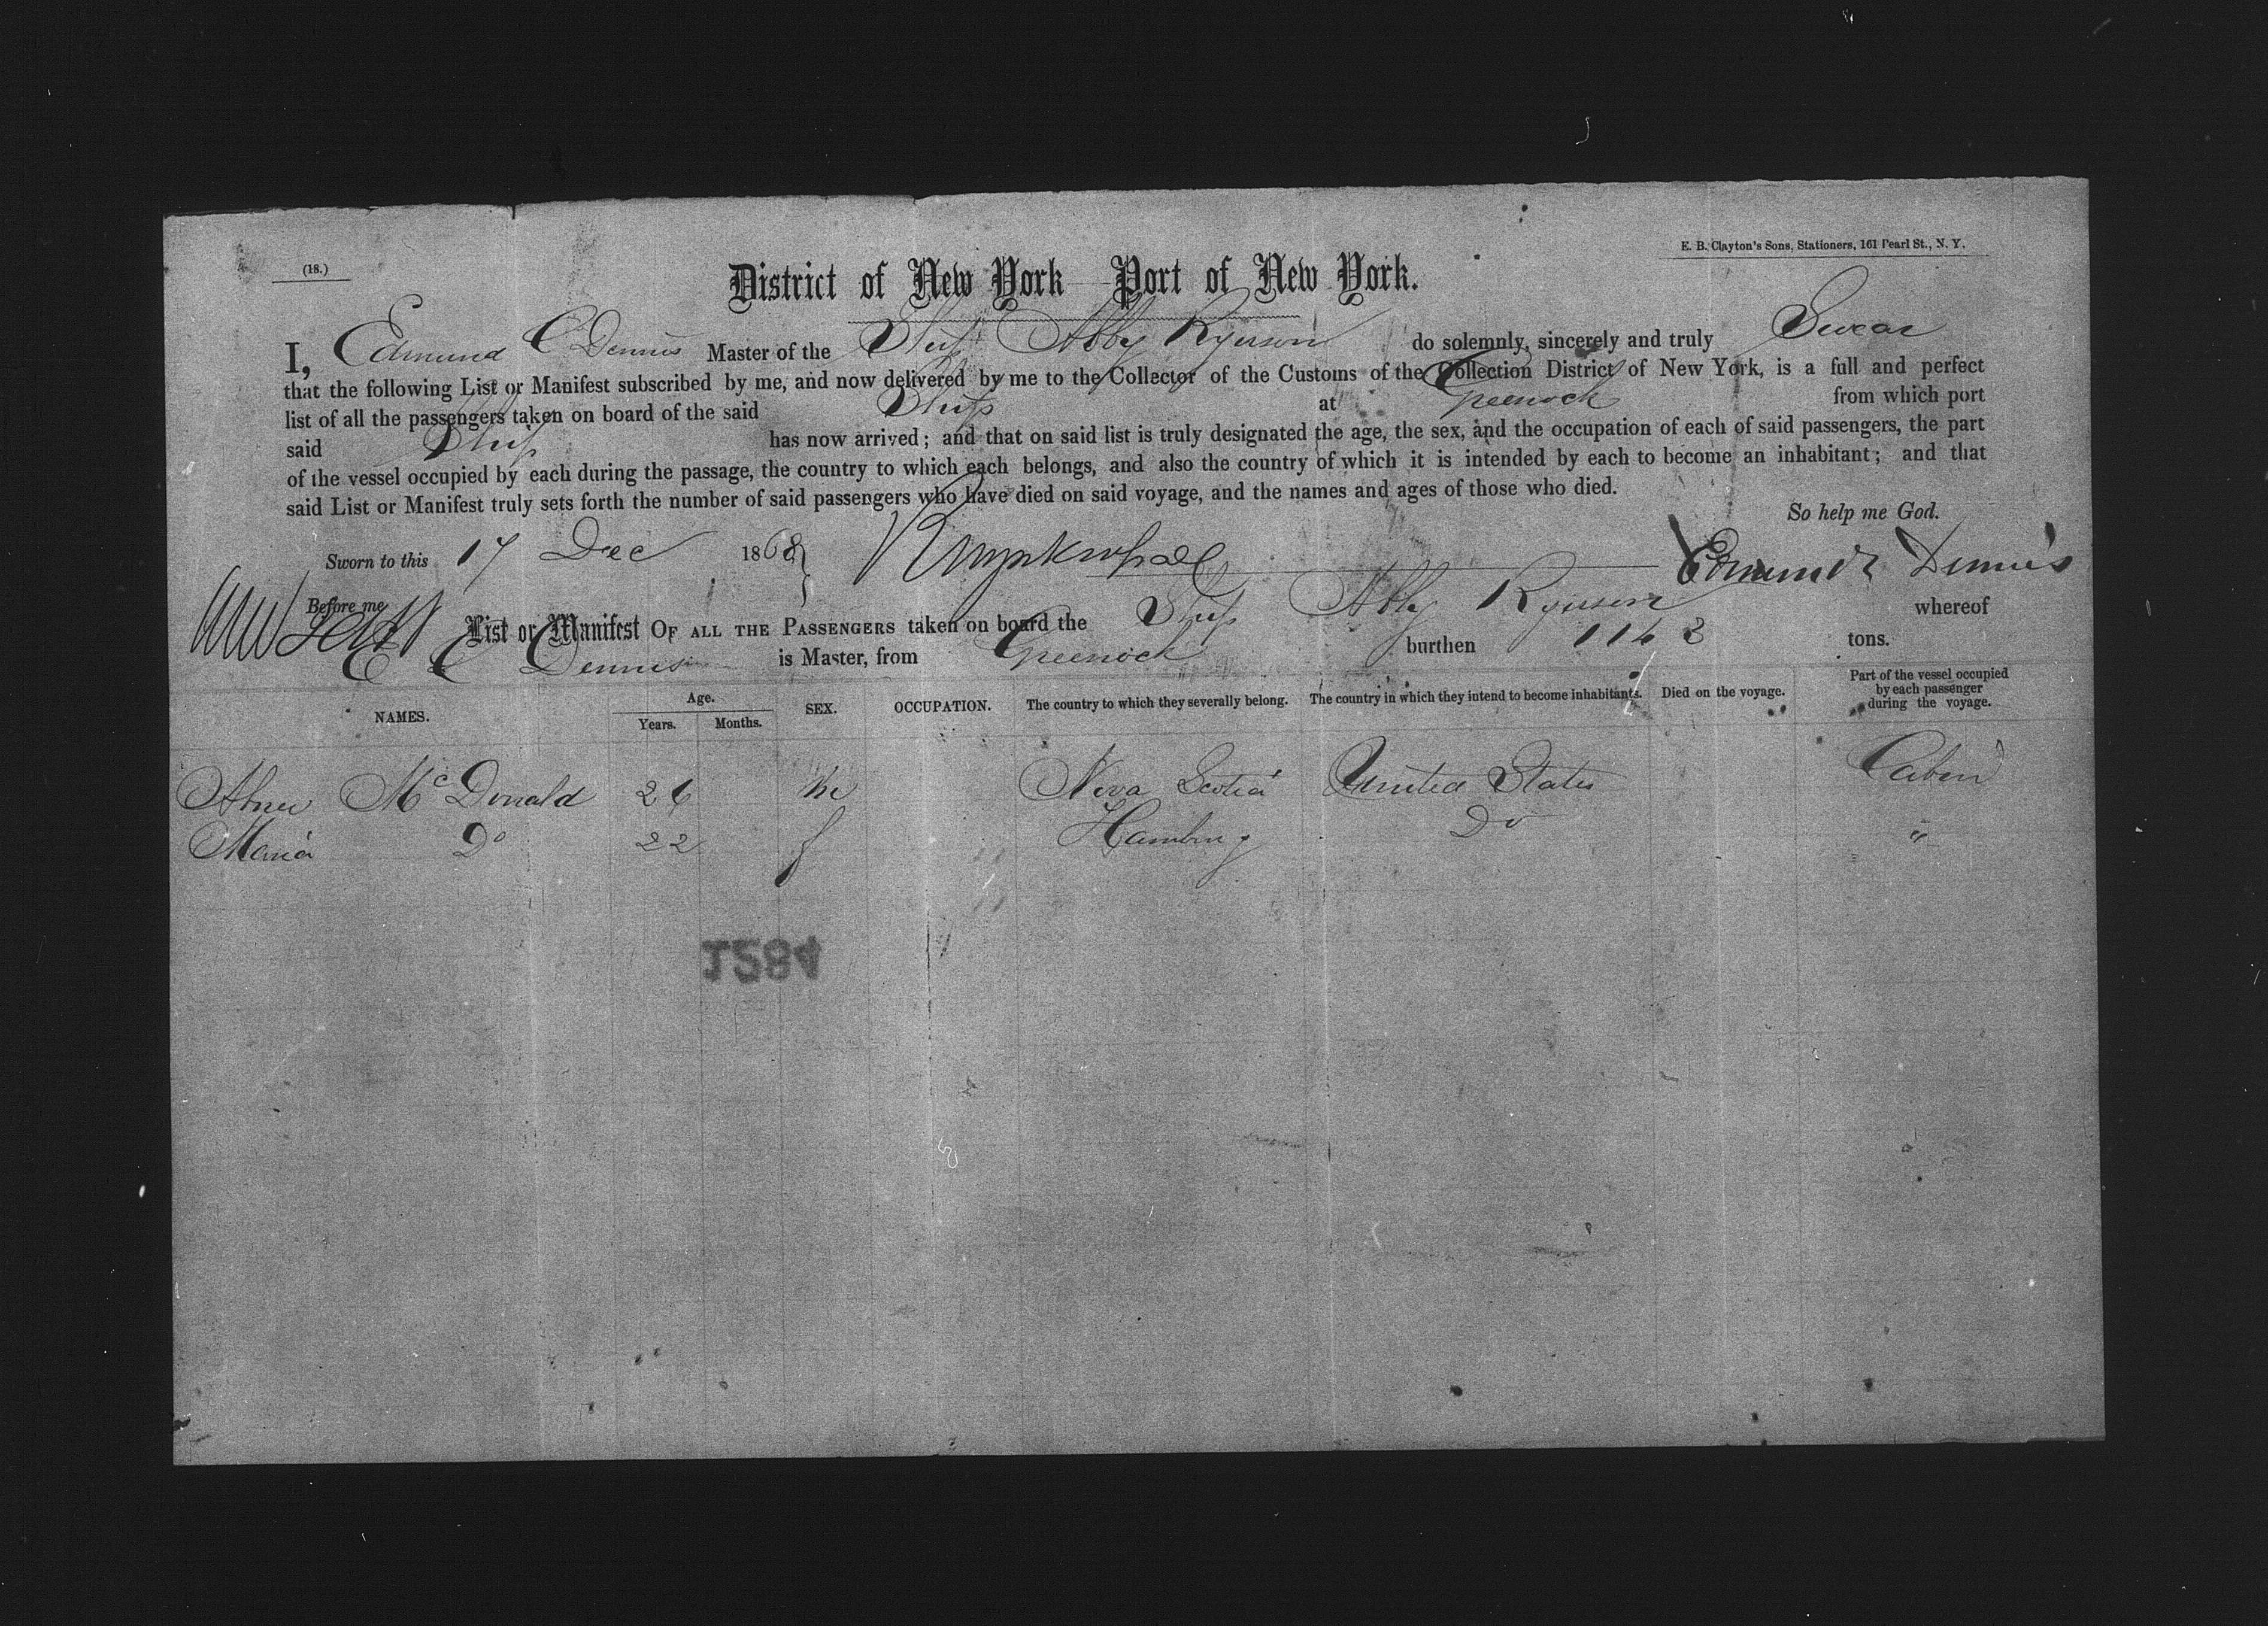 (18.)
E. B. Clayton's Sons, Stationers, 161 Pearl St., N. Y.
District of New York Port of New York.
I, Edmund C Dennis Master of the Ship Abby Ryerson do solemnly, sincerely and truly Swear
that the following List or Manifest subscribed by me, and now delivered by me to the Collector of the Customs of the Collection District of New York, is a full and perfect
list of all the passengers taken on board of the said Ship at Greenock from which port
said Ship has now arrived; and that on said list is truly designated the age, the sex, and the occupation of each of said passengers, the part
of the vessel occupied by each during the passage, the country to which each belongs, and also the country of which it is intended by each to become an inhabitant; and that
said List or Manifest truly sets forth the number of said passengers who have died on said voyage, and the names and ages of those who died.
So help me God.
Sworn to this 17 Dec 1868 Edmund Dennis
Before me
List or Manifest OF ALL THE PASSENGERS taken on board the Ship Abby Ryerson whereof
E C Dennis is Master, from Greenock burthen 1142 tons.
NAMES. Age. Years. Months. SEX. OCCUPATION. The country to which they severally belong. The country in which they intend to become inhabitants. Died on the voyage. Part of the vessel occupied by each passenger during the voyage.
Abner McDonald 26 m Nova Scotia United States Cabin
Maria Do 22 f Hamburg Do "
1284